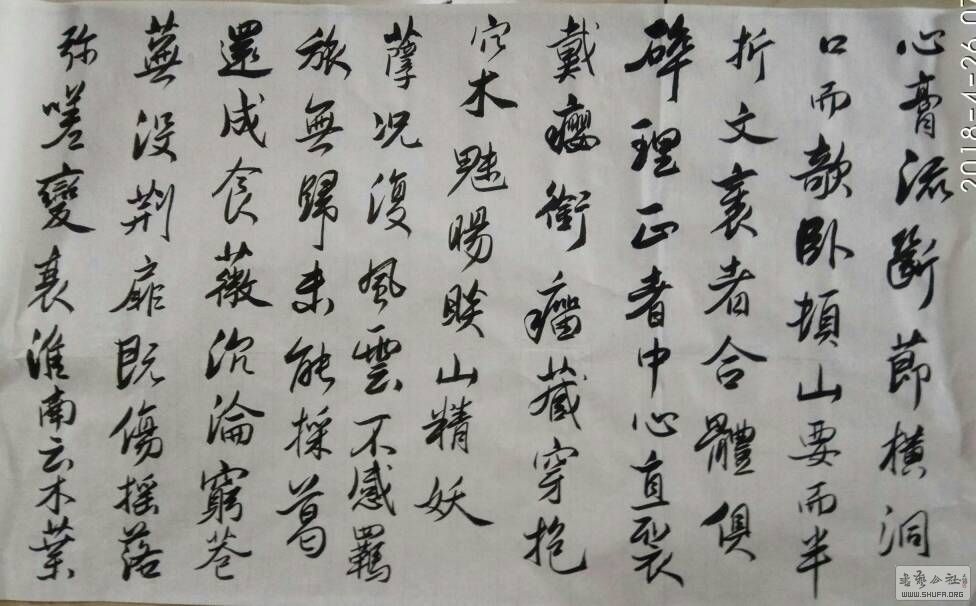 心膏流斷節橫洞
口而欹臥頓山要而半
折文衰者合體俱
碎理正者中心直裂
戴癭銜瘤藏穿抱
穴木魅暘睒山精妖
孽況復風雲不感羈
旅無歸未能採葛
還成食薇沉淪窮巷
蕪沒荊扉既傷搖落
弥嗟變衰淮南云木葉
2018-4-26 07
书艺公社
WWW.SHUFA.ORG